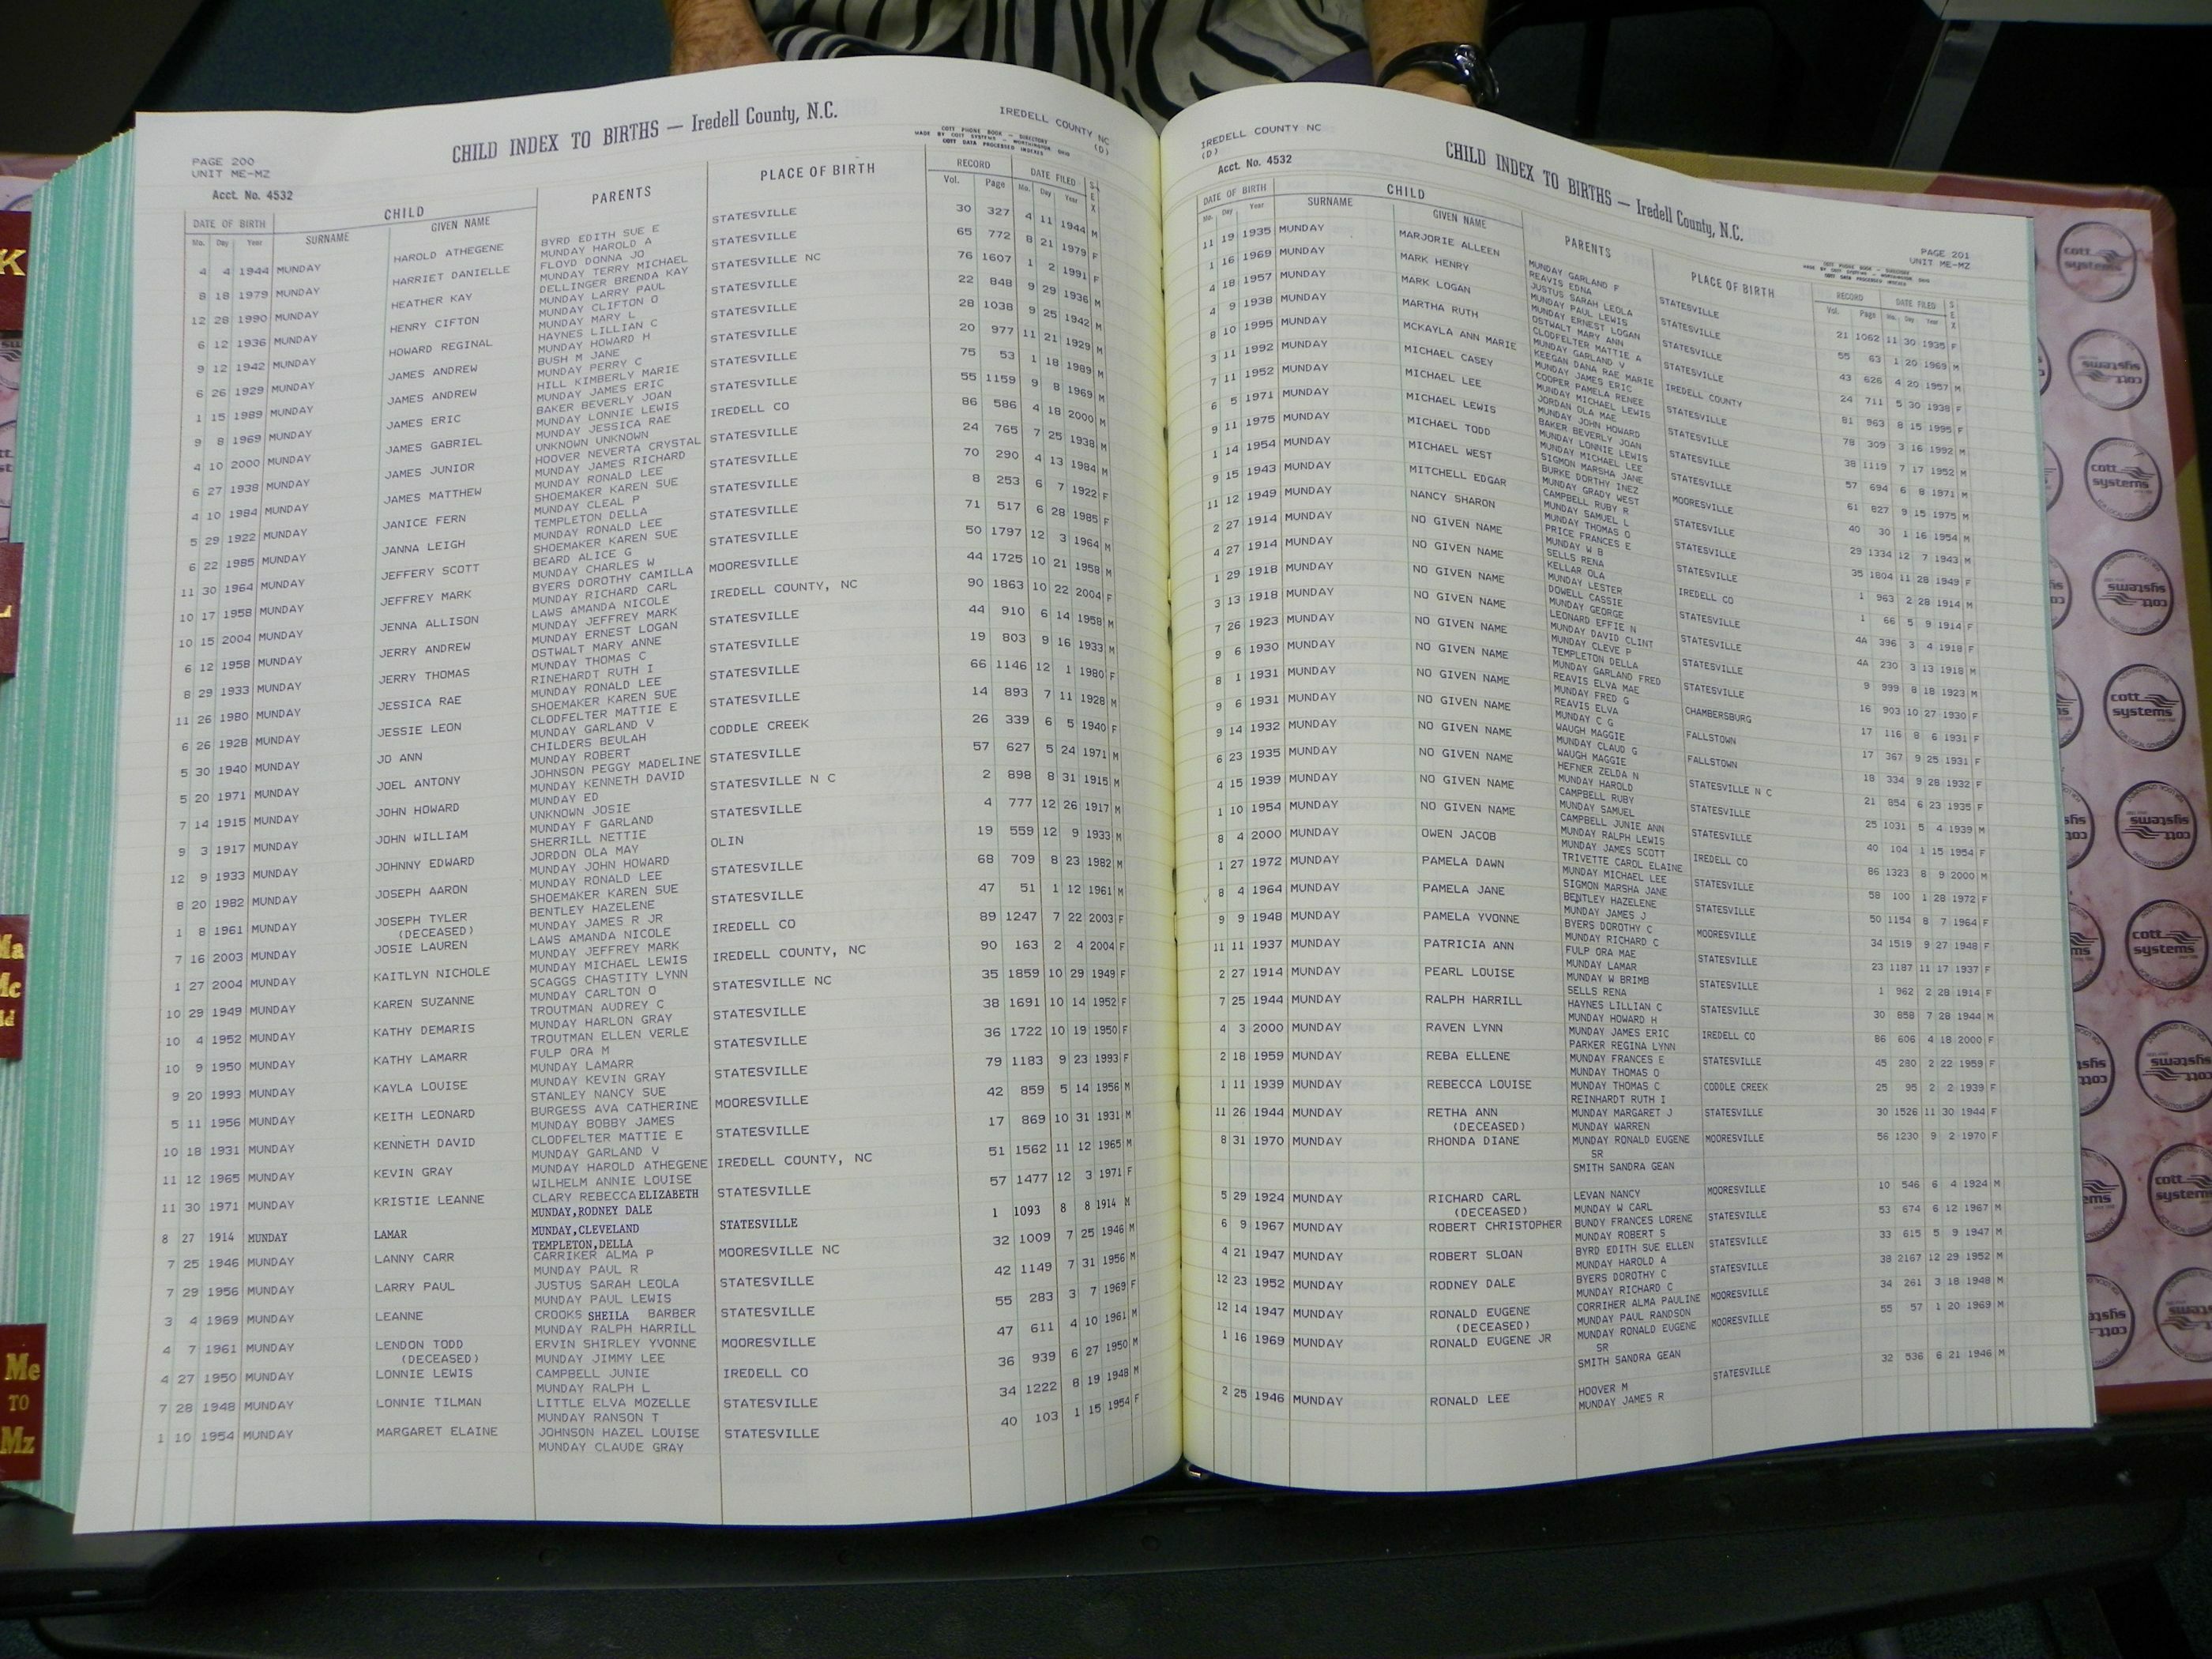 CHILD INDEX TO BIRTHS — Iredell County, N.C.
IREDELL COUNTY NC
(D)
PAGE 200
UNIT ME-MZ
COTT PHONE BOOK - DIRECTORY
MADE BY COTT SYSTEMS - WORTHINGTON, OHIO
COTT DATA PROCESSED INDEXES
Acct. No. 4532
DATE OF BIRTH CHILD PARENTS PLACE OF BIRTH RECORD DATE FILED SEX
Mo. Day Year SURNAME GIVEN NAME Vol. Page Mo. Day Year
4 4 1944 MUNDAY HAROLD ATHEGENE BYRD EDITH SUE E STATESVILLE 30 327 4 11 1944 M
MUNDAY HAROLD A
8 18 1979 MUNDAY HARRIET DANIELLE FLOYD DONNA JO STATESVILLE 65 772 8 21 1979 F
MUNDAY TERRY MICHAEL
12 28 1990 MUNDAY HEATHER KAY DELLINGER BRENDA KAY STATESVILLE NC 76 1607 1 2 1991 F
MUNDAY LARRY PAUL
6 12 1936 MUNDAY HENRY CIFTON MUNDAY CLIFTON O STATESVILLE 22 848 9 29 1936 M
MUNDAY MARY L
9 12 1942 MUNDAY HOWARD REGINAL HAYNES LILLIAN C STATESVILLE 28 1038 9 25 1942 M
MUNDAY HOWARD H
6 26 1929 MUNDAY JAMES ANDREW BUSH M JANE STATESVILLE 20 977 11 21 1929 M
MUNDAY PERRY C
1 15 1989 MUNDAY JAMES ANDREW HILL KIMBERLY MARIE STATESVILLE 75 53 1 18 1989 M
MUNDAY JAMES ERIC
9 8 1969 MUNDAY JAMES ERIC BAKER BEVERLY JOAN STATESVILLE 55 1159 9 8 1969 M
MUNDAY LONNIE LEWIS
4 10 2000 MUNDAY JAMES GABRIEL MUNDAY JESSICA RAE IREDELL CO 86 586 4 18 2000 M
UNKNOWN UNKNOWN
6 27 1938 MUNDAY JAMES JUNIOR HOOVER NEVERTA CRYSTAL STATESVILLE 24 765 7 25 1938 M
MUNDAY JAMES RICHARD
4 10 1984 MUNDAY JAMES MATTHEW MUNDAY RONALD LEE STATESVILLE 70 290 4 13 1984 M
SHOEMAKER KAREN SUE
5 29 1922 MUNDAY JANICE FERN MUNDAY CLEAL P STATESVILLE 8 253 6 7 1922 F
TEMPLETON DELLA
6 22 1985 MUNDAY JANNA LEIGH MUNDAY RONALD LEE STATESVILLE 71 517 6 28 1985 F
SHOEMAKER KAREN SUE
11 30 1964 MUNDAY JEFFERY SCOTT BEARD ALICE G STATESVILLE 50 1797 12 3 1964 M
MUNDAY CHARLES W
10 17 1958 MUNDAY JEFFREY MARK BYERS DOROTHY CAMILLA MOORESVILLE 44 1725 10 21 1958 M
MUNDAY RICHARD CARL
10 15 2004 MUNDAY JENNA ALLISON LAWS AMANDA NICOLE IREDELL COUNTY, NC 90 1863 10 22 2004 F
MUNDAY JEFFREY MARK
6 12 1958 MUNDAY JERRY ANDREW MUNDAY ERNEST LOGAN STATESVILLE 44 910 6 14 1958 M
OSTWALT MARY ANNE
8 29 1933 MUNDAY JERRY THOMAS MUNDAY THOMAS C STATESVILLE 19 803 9 16 1933 M
RINEHARDT RUTH I
11 26 1980 MUNDAY JESSICA RAE MUNDAY RONALD LEE STATESVILLE 66 1146 12 1 1980 F
SHOEMAKER KAREN SUE
6 26 1928 MUNDAY JESSIE LEON CLODFELTER MATTIE E STATESVILLE 14 893 7 11 1928 M
MUNDAY GARLAND V
5 30 1940 MUNDAY JO ANN CHILDERS BEULAH CODDLE CREEK 26 339 6 5 1940 F
MUNDAY ROBERT
5 20 1971 MUNDAY JOEL ANTONY JOHNSON PEGGY MADELINE STATESVILLE 57 627 5 24 1971 M
MUNDAY KENNETH DAVID
7 14 1915 MUNDAY JOHN HOWARD MUNDAY ED STATESVILLE N C 2 898 8 31 1915 M
UNKNOWN JOSIE
9 3 1917 MUNDAY JOHN WILLIAM MUNDAY F GARLAND STATESVILLE 4 777 12 26 1917 M
SHERRILL NETTIE
12 9 1933 MUNDAY JOHNNY EDWARD JORDON OLA MAY OLIN 19 559 12 9 1933 M
MUNDAY JOHN HOWARD
8 20 1982 MUNDAY JOSEPH AARON MUNDAY RONALD LEE STATESVILLE 68 709 8 23 1982 M
SHOEMAKER KAREN SUE
1 8 1961 MUNDAY JOSEPH TYLER BENTLEY HAZELENE STATESVILLE 47 51 1 12 1961 M
(DECEASED) MUNDAY JAMES R JR
7 16 2003 MUNDAY JOSIE LAUREN LAWS AMANDA NICOLE IREDELL CO 89 1247 7 22 2003 F
MUNDAY JEFFREY MARK
1 27 2004 MUNDAY KAITLYN NICHOLE MUNDAY MICHAEL LEWIS IREDELL COUNTY, NC 90 163 2 4 2004 F
SCAGGS CHASTITY LYNN
10 29 1949 MUNDAY KAREN SUZANNE MUNDAY CARLTON O STATESVILLE NC 35 1859 10 29 1949 F
TROUTMAN AUDREY C
10 4 1952 MUNDAY KATHY DEMARIS MUNDAY HARLON GRAY STATESVILLE 38 1691 10 14 1952 F
TROUTMAN ELLEN VERLE
10 9 1950 MUNDAY KATHY LAMARR FULP ORA M STATESVILLE 36 1722 10 19 1950 F
MUNDAY LAMARR
9 20 1993 MUNDAY KAYLA LOUISE MUNDAY KEVIN GRAY STATESVILLE 79 1183 9 23 1993 F
STANLEY NANCY SUE
5 11 1956 MUNDAY KEITH LEONARD BURGESS AVA CATHERINE MOORESVILLE 42 859 5 14 1956 M
MUNDAY BOBBY JAMES
10 18 1931 MUNDAY KENNETH DAVID CLODFELTER MATTIE E STATESVILLE 17 869 10 31 1931 M
MUNDAY GARLAND V
11 12 1965 MUNDAY KEVIN GRAY MUNDAY HAROLD ATHEGENE IREDELL COUNTY, NC 51 1562 11 12 1965 M
WILHELM ANNIE LOUISE
11 30 1971 MUNDAY KRISTIE LEANNE CLARY REBECCA ELIZABETH STATESVILLE 57 1477 12 3 1971 F
MUNDAY,RODNEY DALE
8 27 1914 MUNDAY LAMAR MUNDAY,CLEVELAND STATESVILLE 1 1093 8 8 1914 M
TEMPLETON,DELLA
7 25 1946 MUNDAY LANNY CARR CARRIKER ALMA P MOORESVILLE NC 32 1009 7 25 1946 M
MUNDAY PAUL R
7 29 1956 MUNDAY LARRY PAUL JUSTUS SARAH LEOLA STATESVILLE 42 1149 7 31 1956 M
MUNDAY PAUL LEWIS
3 4 1969 MUNDAY LEANNE CROOKS SHEILA BARBER STATESVILLE 55 283 3 7 1969 F
MUNDAY RALPH HARRILL
4 7 1961 MUNDAY LENDON TODD ERVIN SHIRLEY YVONNE MOORESVILLE 47 611 4 10 1961 M
(DECEASED) MUNDAY JIMMY LEE
4 27 1950 MUNDAY LONNIE LEWIS CAMPBELL JUNIE IREDELL CO 36 939 6 27 1950 M
MUNDAY RALPH L
7 28 1948 MUNDAY LONNIE TILMAN LITTLE ELVA MOZELLE STATESVILLE 34 1222 8 19 1948 M
MUNDAY RANSON T
1 10 1954 MUNDAY MARGARET ELAINE JOHNSON HAZEL LOUISE STATESVILLE 40 103 1 15 1954 F
MUNDAY CLAUDE GRAY
IREDELL COUNTY NC
(D)
CHILD INDEX TO BIRTHS — Iredell County, N.C.
Acct. No. 4532
PAGE 201
UNIT ME-MZ
DATE OF BIRTH CHILD PARENTS PLACE OF BIRTH RECORD DATE FILED SEX
Mo. Day Year SURNAME GIVEN NAME Vol. Page Mo. Day Year
11 19 1935 MUNDAY MARJORIE ALLEEN MUNDAY GARLAND F STATESVILLE 21 1062 11 30 1935 F
REAVIS EDNA
1 16 1969 MUNDAY MARK HENRY JUSTUS SARAH LEOLA STATESVILLE 55 63 1 20 1969 M
MUNDAY PAUL LEWIS
4 18 1957 MUNDAY MARK LOGAN MUNDAY ERNEST LOGAN STATESVILLE 43 626 4 20 1957 M
OSTWALT MARY ANN
4 9 1938 MUNDAY MARTHA RUTH CLODFELTER MATTIE A STATESVILLE 24 711 5 30 1938 F
MUNDAY GARLAND V
8 10 1995 MUNDAY MCKAYLA ANN MARIE KEEGAN DANA RAE MARIE IREDELL COUNTY 81 963 8 15 1995 F
MUNDAY JAMES ERIC
3 11 1992 MUNDAY MICHAEL CASEY COOPER PAMELA RENEE STATESVILLE 78 309 3 16 1992 M
MUNDAY MICHAEL LEWIS
7 11 1952 MUNDAY MICHAEL LEE JORDAN OLA MAE STATESVILLE 38 1119 7 17 1952 M
MUNDAY JOHN HOWARD
6 5 1971 MUNDAY MICHAEL LEWIS BAKER BEVERLY JOAN STATESVILLE 57 694 6 8 1971 M
MUNDAY LONNIE LEWIS
9 11 1975 MUNDAY MICHAEL TODD MUNDAY MICHAEL LEE MOORESVILLE 61 827 9 15 1975 M
SIGMON MARSHA JANE
1 14 1954 MUNDAY MICHAEL WEST BURKE DORTHY INEZ STATESVILLE 40 30 1 16 1954 M
MUNDAY GRADY WEST
9 15 1943 MUNDAY MITCHELL EDGAR CAMPBELL RUBY R STATESVILLE 29 1334 12 7 1943 M
MUNDAY SAMUEL L
11 12 1949 MUNDAY NANCY SHARON MUNDAY THOMAS O STATESVILLE 35 1804 11 28 1949 F
PRICE FRANCES E
2 27 1914 MUNDAY NO GIVEN NAME MUNDAY W B IREDELL CO 1 963 2 28 1914 M
SELLS RENA
4 27 1914 MUNDAY NO GIVEN NAME KELLAR OLA 1 66 5 9 1914 F
MUNDAY LESTER
1 29 1918 MUNDAY NO GIVEN NAME DOWELL CASSIE STATESVILLE 4A 396 3 4 1918 F
MUNDAY GEORGE
3 13 1918 MUNDAY NO GIVEN NAME LEONARD EFFIE N STATESVILLE 4A 230 3 13 1918 M
MUNDAY DAVID CLINT
7 26 1923 MUNDAY NO GIVEN NAME MUNDAY CLEVE P STATESVILLE 9 999 8 18 1923 M
TEMPLETON DELLA
9 6 1930 MUNDAY NO GIVEN NAME MUNDAY GARLAND FRED CHAMBERSBURG 16 903 10 27 1930 F
REAVIS ELVA MAE
8 1 1931 MUNDAY NO GIVEN NAME MUNDAY FRED G FALLSTOWN 17 116 8 6 1931 F
REAVIS ELVA
9 6 1931 MUNDAY NO GIVEN NAME MUNDAY C G FALLSTOWN 17 367 9 25 1931 F
WAUGH MAGGIE
9 14 1932 MUNDAY NO GIVEN NAME MUNDAY CLAUD G STATESVILLE N C 18 334 9 28 1932 F
WAUGH MAGGIE
6 23 1935 MUNDAY NO GIVEN NAME HEFNER ZELDA N STATESVILLE 21 854 6 23 1935 F
MUNDAY HAROLD
4 15 1939 MUNDAY NO GIVEN NAME CAMPBELL RUBY STATESVILLE 25 1031 5 4 1939 M
MUNDAY SAMUEL
1 10 1954 MUNDAY NO GIVEN NAME CAMPBELL JUNIE ANN 40 104 1 15 1954 F
MUNDAY RALPH LEWIS
8 4 2000 MUNDAY OWEN JACOB MUNDAY JAMES SCOTT IREDELL CO 86 1323 8 9 2000 M
TRIVETTE CAROL ELAINE
1 27 1972 MUNDAY PAMELA DAWN MUNDAY MICHAEL LEE STATESVILLE 58 100 1 28 1972 F
SIGMON MARSHA JANE
8 4 1964 MUNDAY PAMELA JANE BENTLEY HAZELENE STATESVILLE 50 1154 8 7 1964 F
MUNDAY JAMES J
9 9 1948 MUNDAY PAMELA YVONNE BYERS DOROTHY C MOORESVILLE 34 1519 9 27 1948 F
MUNDAY RICHARD C
11 11 1937 MUNDAY PATRICIA ANN FULP ORA MAE STATESVILLE 23 1187 11 17 1937 F
MUNDAY LAMAR
2 27 1914 MUNDAY PEARL LOUISE MUNDAY W BRIMB STATESVILLE 1 962 2 28 1914 F
SELLS RENA
7 25 1944 MUNDAY RALPH HARRILL HAYNES LILLIAN C STATESVILLE 30 858 7 28 1944 M
MUNDAY HOWARD H
4 3 2000 MUNDAY RAVEN LYNN MUNDAY JAMES ERIC IREDELL CO 86 606 4 18 2000 F
PARKER REGINA LYNN
2 18 1959 MUNDAY REBA ELLENE MUNDAY FRANCES E STATESVILLE 45 280 2 22 1959 F
MUNDAY THOMAS O
1 11 1939 MUNDAY REBECCA LOUISE MUNDAY THOMAS C CODDLE CREEK 25 95 2 2 1939 F
REINHARDT RUTH I
11 26 1944 MUNDAY RETHA ANN MUNDAY MARGARET J STATESVILLE 30 1526 11 30 1944 F
(DECEASED) MUNDAY WARREN
8 31 1970 MUNDAY RHONDA DIANE MUNDAY RONALD EUGENE MOORESVILLE 56 1230 9 2 1970 F
SR
SMITH SANDRA GEAN
5 29 1924 MUNDAY RICHARD CARL LEVAN NANCY MOORESVILLE 10 546 6 4 1924 M
(DECEASED) MUNDAY W CARL
6 9 1967 MUNDAY ROBERT CHRISTOPHER BUNDY FRANCES LORENE STATESVILLE 53 674 6 12 1967 M
MUNDAY ROBERT S
4 21 1947 MUNDAY ROBERT SLOAN BYRD EDITH SUE ELLEN STATESVILLE 33 615 5 9 1947 M
MUNDAY HAROLD A
12 23 1952 MUNDAY RODNEY DALE BYERS DOROTHY C STATESVILLE 38 2167 12 29 1952 M
MUNDAY RICHARD C
12 14 1947 MUNDAY RONALD EUGENE CORRIHER ALMA PAULINE MOORESVILLE 34 261 3 18 1948 M
(DECEASED) MUNDAY PAUL RANDSON
1 16 1969 MUNDAY RONALD EUGENE JR MUNDAY RONALD EUGENE MOORESVILLE 55 57 1 20 1969 M
SR
SMITH SANDRA GEAN
2 25 1946 MUNDAY RONALD LEE HOOVER M STATESVILLE 32 536 6 21 1946 M
MUNDAY JAMES R
K
L
Ma
Mc
Me
TO
Mz
cott
systems